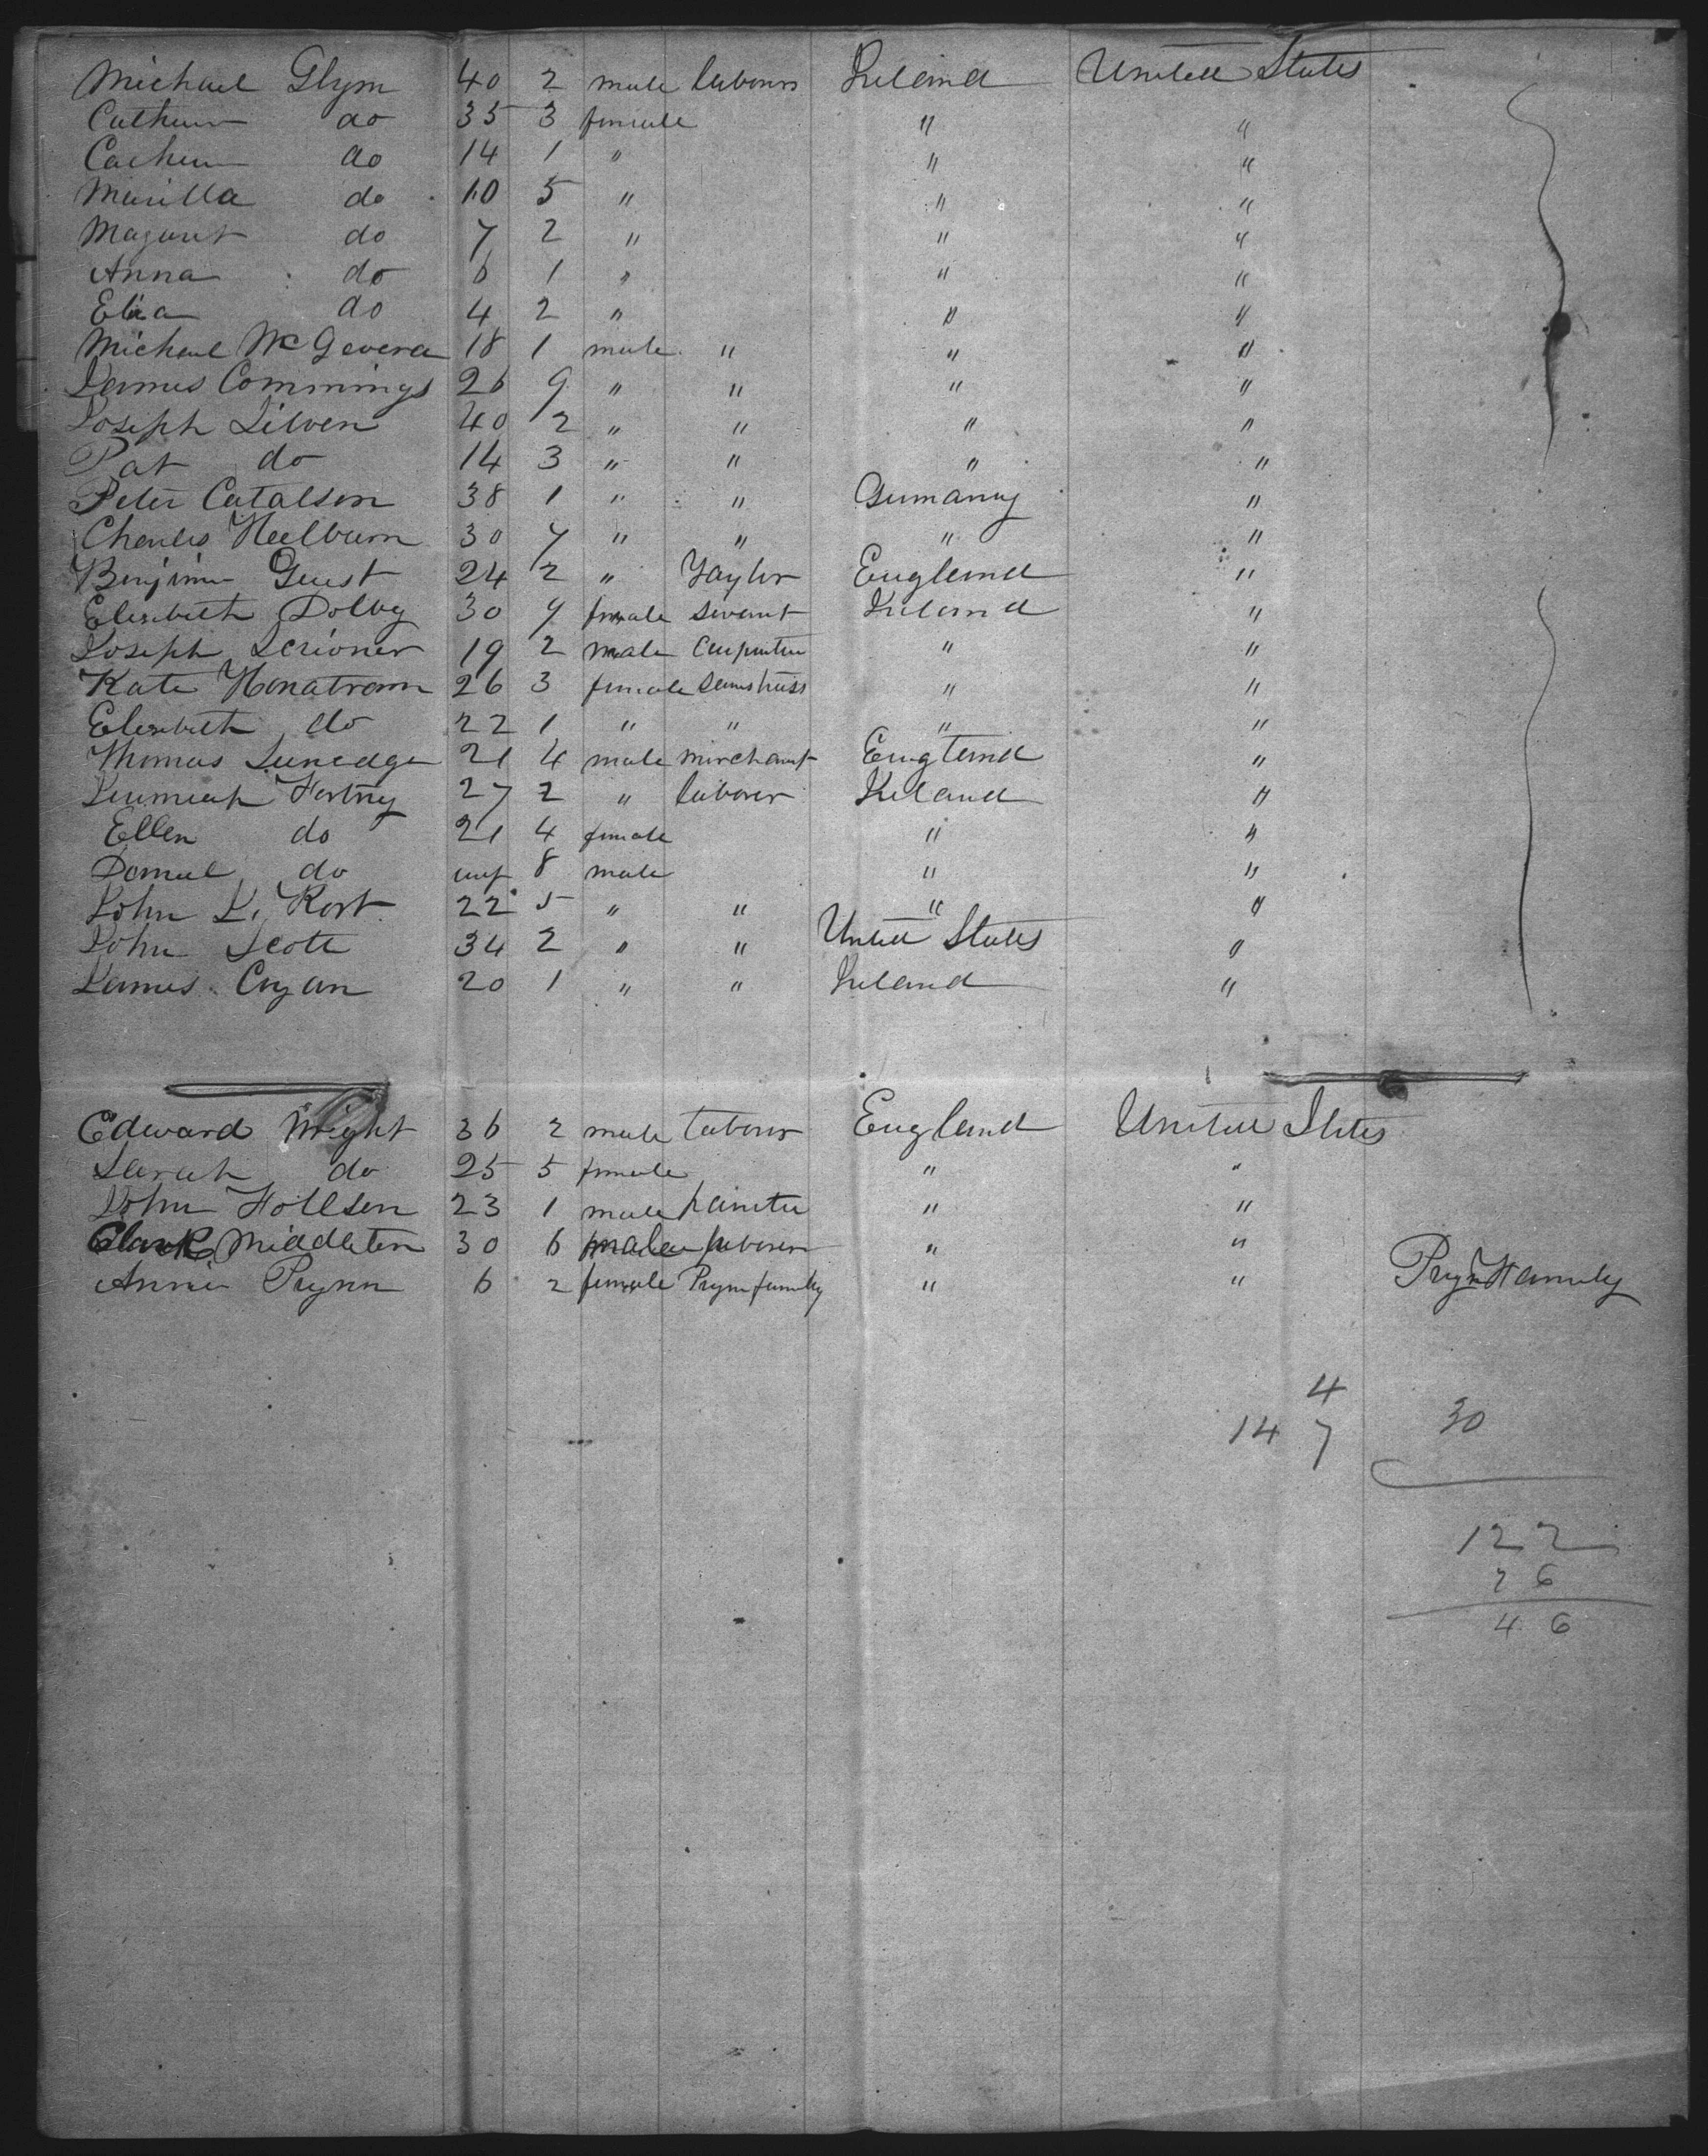 Michael Glynn 40 2 male labourer Ireland United States
do 35 3 female " "
do 14 1 " " "
do 10 5 " " "
Magaret do 7 2 " " "
Anna do 6 1 " " "
Eliza do 4 2 " " "
Michael 18 1 male " " "
James Commings 26 9 " " " "
Joseph Silven 40 2 " " " "
Pat do 14 3 " " " "
Peter Catalson 38 1 " " Germany "
Charles Heelburn 30 7 " " " "
Benjimin Guest 24 2 " Taylor England "
Elesebeth Dolby 30 9 female servent Ireland "
Joseph Scrioner 19 2 male carpenter " "
Kate Honatrom 26 3 female " "
Elesebeth do 22 1 " " " "
Thomas 21 4 male merchant England "
Jeremiah 27 2 " laborer Ireland "
Ellen do 21 4 female " "
Daniel do inf 8 male " "
John Rost 22 5 " " " "
John Scott 34 2 " " United States "
James 20 1 " " Ireland "
Edward Wright 36 2 male laborer England United States
Sarah do 25 5 female " "
John 23 1 male painter " "
Clark Middleton 30 6 male laborer " "
Annie Prynn 6 2 female Prynn family " " Prynn Family
4
14 7 30
122
76
46